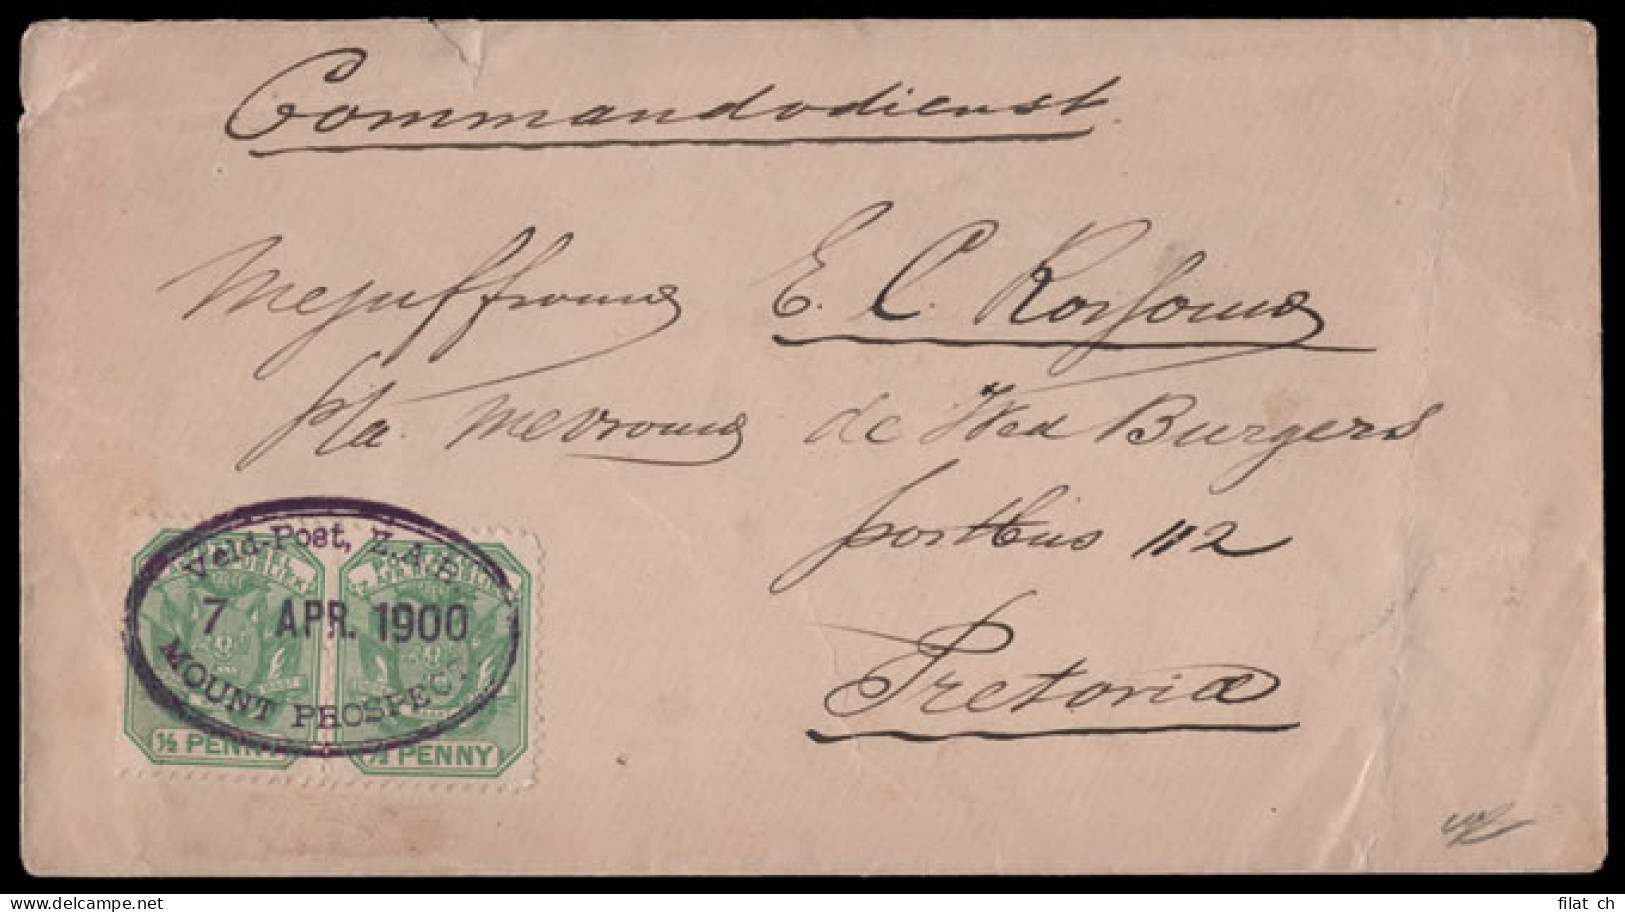 Commandodienst
Mejuffrouw E. C.
p/a. Mevrouw de Wed Burgers
posthuis 112
Pretoria
Veld-Post, Z.A.R.
7 APR. 1900
MOUNT PROSPECT.
½ PENNY ½ PENNY
delcampe.net
filat_ch